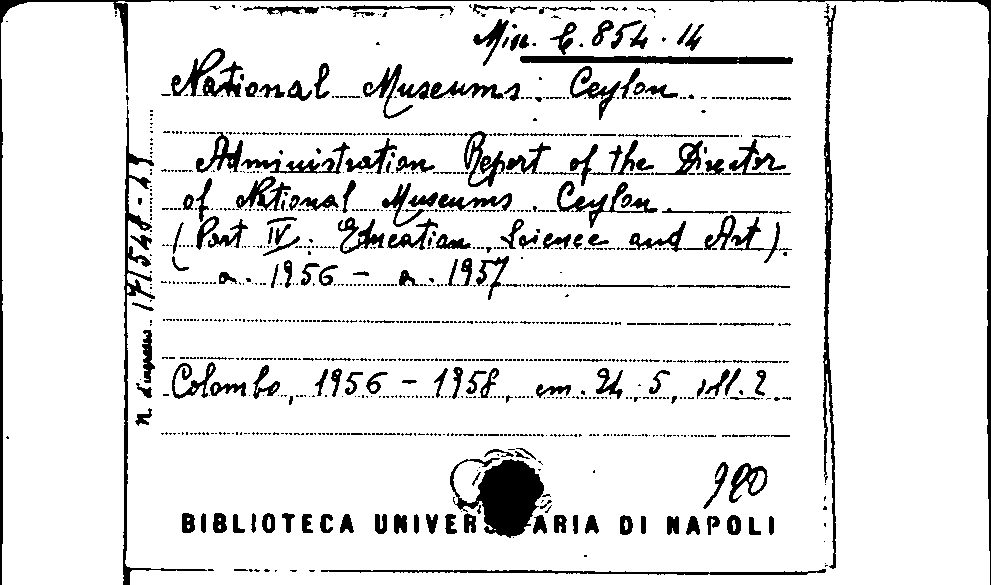 Min. C. 854. 14
National Museums. Ceylon.
Administration Report of the Director
of National Museums. Ceylon.
(Part IV. Education, Science and Art).
a. 1956 - a. 1957
Colombo, 1956 - 1958, cm. 24,5, ill. 2.
n. d'ingresso 171548-49
990
BIBLIOTECA UNIVERSITARIA DI NAPOLI